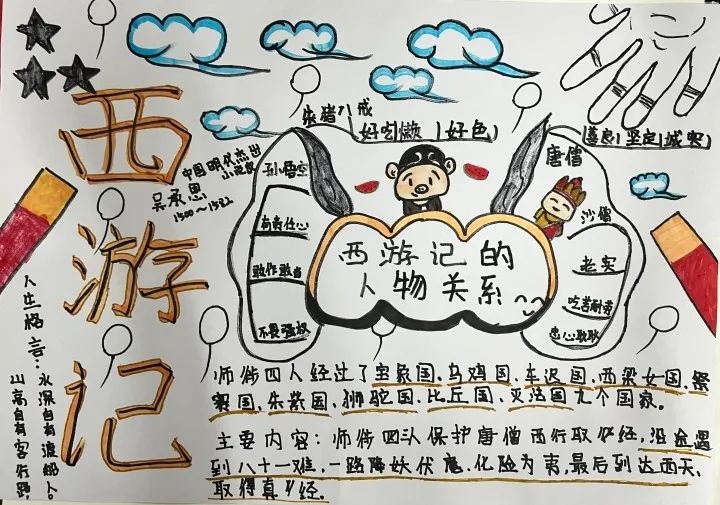 西游记
中国明代杰出
小说家
吴承恩
1500~1582
人生格言：
水深自有渡船人。
山高自有客行路，
孙悟空
有责任心
敢作敢当
不畏强权
猪八戒
好吃懒 好色
唐僧
善良 坚定 诚实
沙僧
老实
吃苦耐劳
忠心耿耿
西游记的
人物关系
师徒四人经过了宝象国、乌鸡国、车迟国、西梁女国、祭
赛国、朱紫国、狮驼国、比丘国、灭法国九个国家。
主要内容：师徒四人保护唐僧西行取经，沿途遇
到八十一难，一路降妖伏魔，化险为夷，最后到达西天、
取得真经。